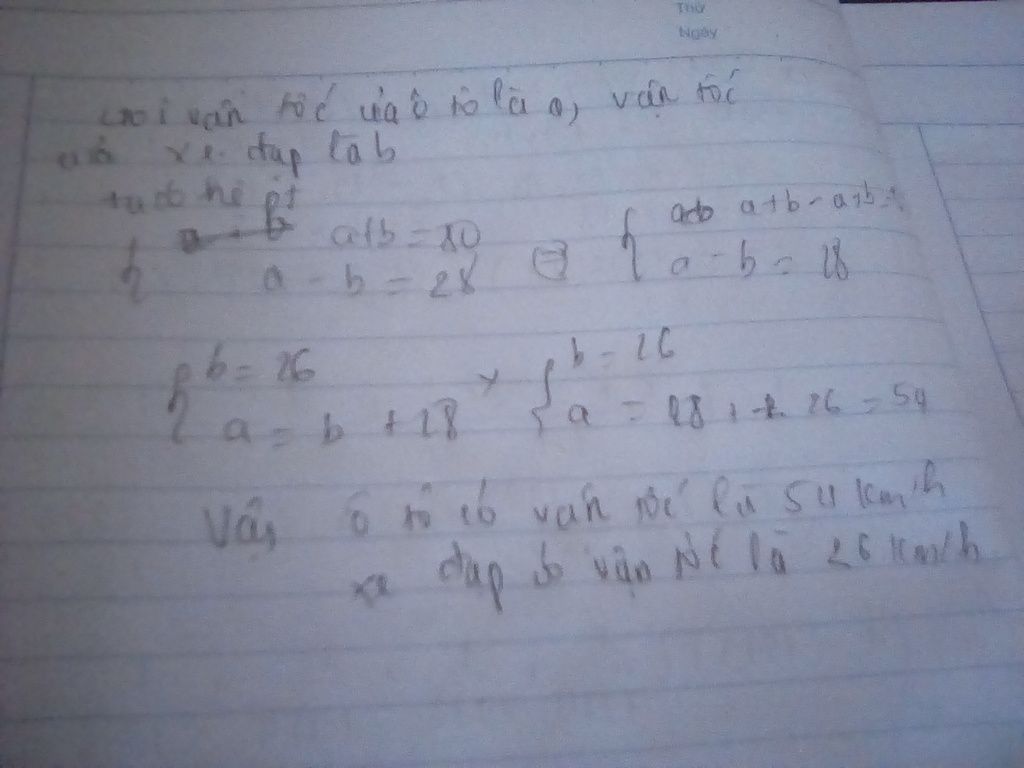 Thứ
Ngày
Gọi vận tốc của ô tô là a, vận tốc
của xe đạp là b
ta có hệ pt
{ a+b = 80 ⇔ { a+b - a+b =
a - b = 28 a - b = 28
{ b = 26 { b = 26
a = b + 28 a = 28 + 26 = 54
Vậy ô tô có vận tốc là 54 km/h
xe đạp có vận tốc là 26 km/h